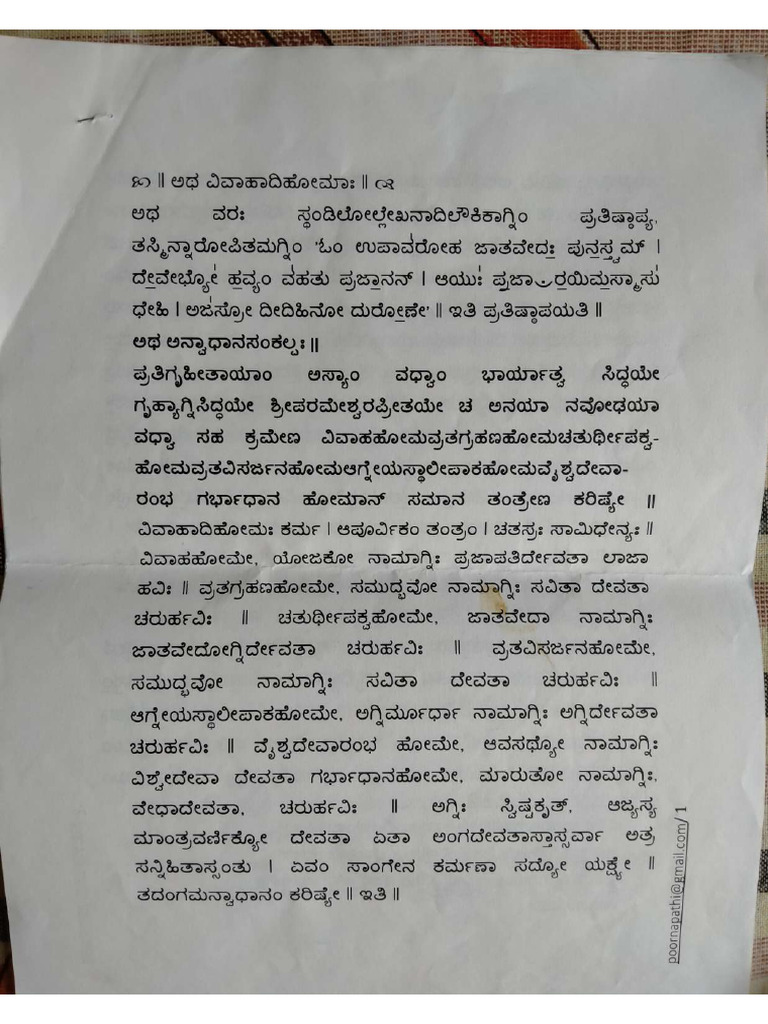 ೫ ॥ ಅಥ ವಿವಾಹಾದಿಹೋಮಾಃ ॥ ೞ
ಅಥ ವರಃ ಸ್ಥಂಡಿಲೋಲ್ಲೇಖನಾದಿಲೌಕಿಕಾಗ್ನಿಂ ಪ್ರತಿಷ್ಠಾಪ್ಯ,
ತಸ್ಮಿನ್ನಾರೋಪಿತಮಗ್ನಿಂ 'ಓಂ ಉಪಾವ॑ರೋಹ ಜಾತವೇದಃ॒ ಪುನ॒ಸ್ತ್ವಮ್ ।
ದೇ॒ವೇಭ್ಯೋ॑ ಹ॒ವ್ಯಂ ವ॑ಹತು ಪ್ರಜಾ॒ನನ್ । ಆಯುಃ॑ ಪ್ರ॒ಜಾಂ ರ॒ಯಿಮ॒ಸ್ಮಾಸು॑
ಧೇಹಿ । ಅಜ॑ಸ್ರೋ ದೀದಿಹಿನೋ ದುರೋ॒ಣೇ' ॥ ಇತಿ ಪ್ರತಿಷ್ಠಾಪಯತಿ ॥
ಅಥ ಅನ್ವಾಧಾನಸಂಕಲ್ಪಃ ॥
ಪ್ರತಿಗೃಹೀತಾಯಾಂ ಅಸ್ಯಾಂ ವಧ್ವಾಂ ಭಾರ್ಯಾತ್ವ ಸಿದ್ಧಯೇ
ಗೃಹ್ಯಾಗ್ನಿಸಿದ್ಧಯೇ ಶ್ರೀಪರಮೇಶ್ವರಪ್ರೀತಯೇ ಚ ಅನಯಾ ನವೋಢಯಾ
ವಧ್ವಾ ಸಹ ಕ್ರಮೇಣ ವಿವಾಹಹೋಮವ್ರತಗ್ರಹಣಹೋಮಚತುರ್ಥೀಪಕ್ವ-
ಹೋಮವ್ರತವಿಸರ್ಜನಹೋಮಆಗ್ನೇಯಸ್ಥಾಲೀಪಾಕಹೋಮವೈಶ್ವದೇವಾ-
ರಂಭ ಗರ್ಭಾಧಾನ ಹೋಮಾನ್ ಸಮಾನ ತಂತ್ರೇಣ ಕರಿಷ್ಯೇ ॥
ವಿವಾಹಾದಿಹೋಮಃ ಕರ್ಮ । ಆಪೂರ್ವಿಕಂ ತಂತ್ರಂ । ಚತಸ್ರಃ ಸಾಮಿಧೇನ್ಯಃ ॥
ವಿವಾಹಹೋಮೇ, ಯೋಜಕೋ ನಾಮಾಗ್ನಿಃ ಪ್ರಜಾಪತಿರ್ದೇವತಾ ಲಾಜಾ
ಹವಿಃ ॥ ವ್ರತಗ್ರಹಣಹೋಮೇ, ಸಮುದ್ಭವೋ ನಾಮಾಗ್ನಿಃ ಸವಿತಾ ದೇವತಾ
ಚರುರ್ಹವಿಃ ॥ ಚತುರ್ಥೀಪಕ್ವಹೋಮೇ, ಜಾತವೇದಾ ನಾಮಾಗ್ನಿಃ
ಜಾತವೇದೋಗ್ನಿರ್ದೇವತಾ ಚರುರ್ಹವಿಃ ॥ ವ್ರತವಿಸರ್ಜನಹೋಮೇ,
ಸಮುದ್ಭವೋ ನಾಮಾಗ್ನಿಃ ಸವಿತಾ ದೇವತಾ ಚರುರ್ಹವಿಃ ॥
ಆಗ್ನೇಯಸ್ಥಾಲೀಪಾಕಹೋಮೇ, ಅಗ್ನಿರ್ಮೂರ್ಧಾ ನಾಮಾಗ್ನಿಃ ಅಗ್ನಿರ್ದೇವತಾ
ಚರುರ್ಹವಿಃ ॥ ವೈಶ್ವದೇವಾರಂಭ ಹೋಮೇ, ಆವಸಥ್ಯೋ ನಾಮಾಗ್ನಿಃ
ವಿಶ್ವೇದೇವಾ ದೇವತಾ ಗರ್ಭಾಧಾನಹೋಮೇ, ಮಾರುತೋ ನಾಮಾಗ್ನಿಃ,
ವೇಧಾದೇವತಾ, ಚರುರ್ಹವಿಃ ॥ ಅಗ್ನಿಃ ಸ್ವಿಷ್ಟಕೃತ್, ಆಜ್ಯಸ್ಯ
ಮಾಂತ್ರವರ್ಣಿಕ್ಯೋ ದೇವತಾ ಏತಾ ಅಂಗದೇವತಾಸ್ತಾಸ್ಸರ್ವಾ ಅತ್ರ
ಸನ್ನಿಹಿತಾಸ್ಸಂತು । ಏವಂ ಸಾಂಗೇನ ಕರ್ಮಣಾ ಸದ್ಯೋ ಯಕ್ಷ್ಯೇ ॥
ತದಂಗಮನ್ವಾಧಾನಂ ಕರಿಷ್ಯೇ ॥ ಇತಿ ॥
poornapathi@gmail.com/ 1